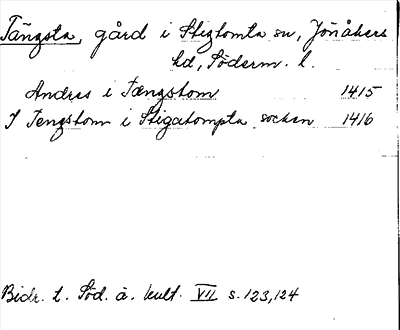 Tängsta, gård i Stigtomta sn, Jönåkers
hd, Söderm. l.
Andras i Tængstom 1415
J Tengstom i Stigatompta sockan 1416
Bidr. t. Söd. ä. kult. VII s. 123, 124